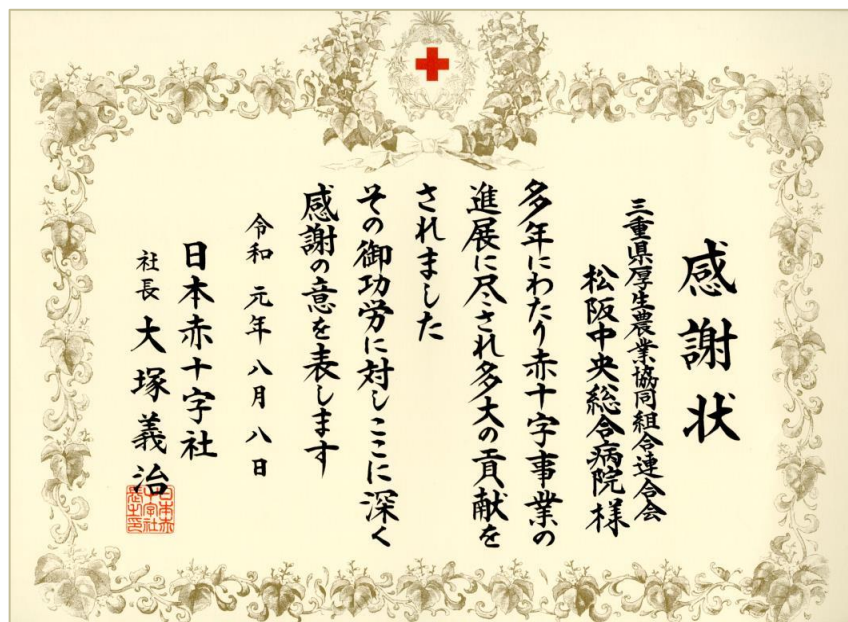 感謝状
三重県厚生農業協同組合連合会
松阪中央総合病院様
多年にわたり赤十字事業の
進展に尽され多大の貢献を
されました
その御功労に対しここに深く
感謝の意を表します
令和元年八月八日
日本赤十字社
社長 大塚義治
日本赤
十字社
長之印